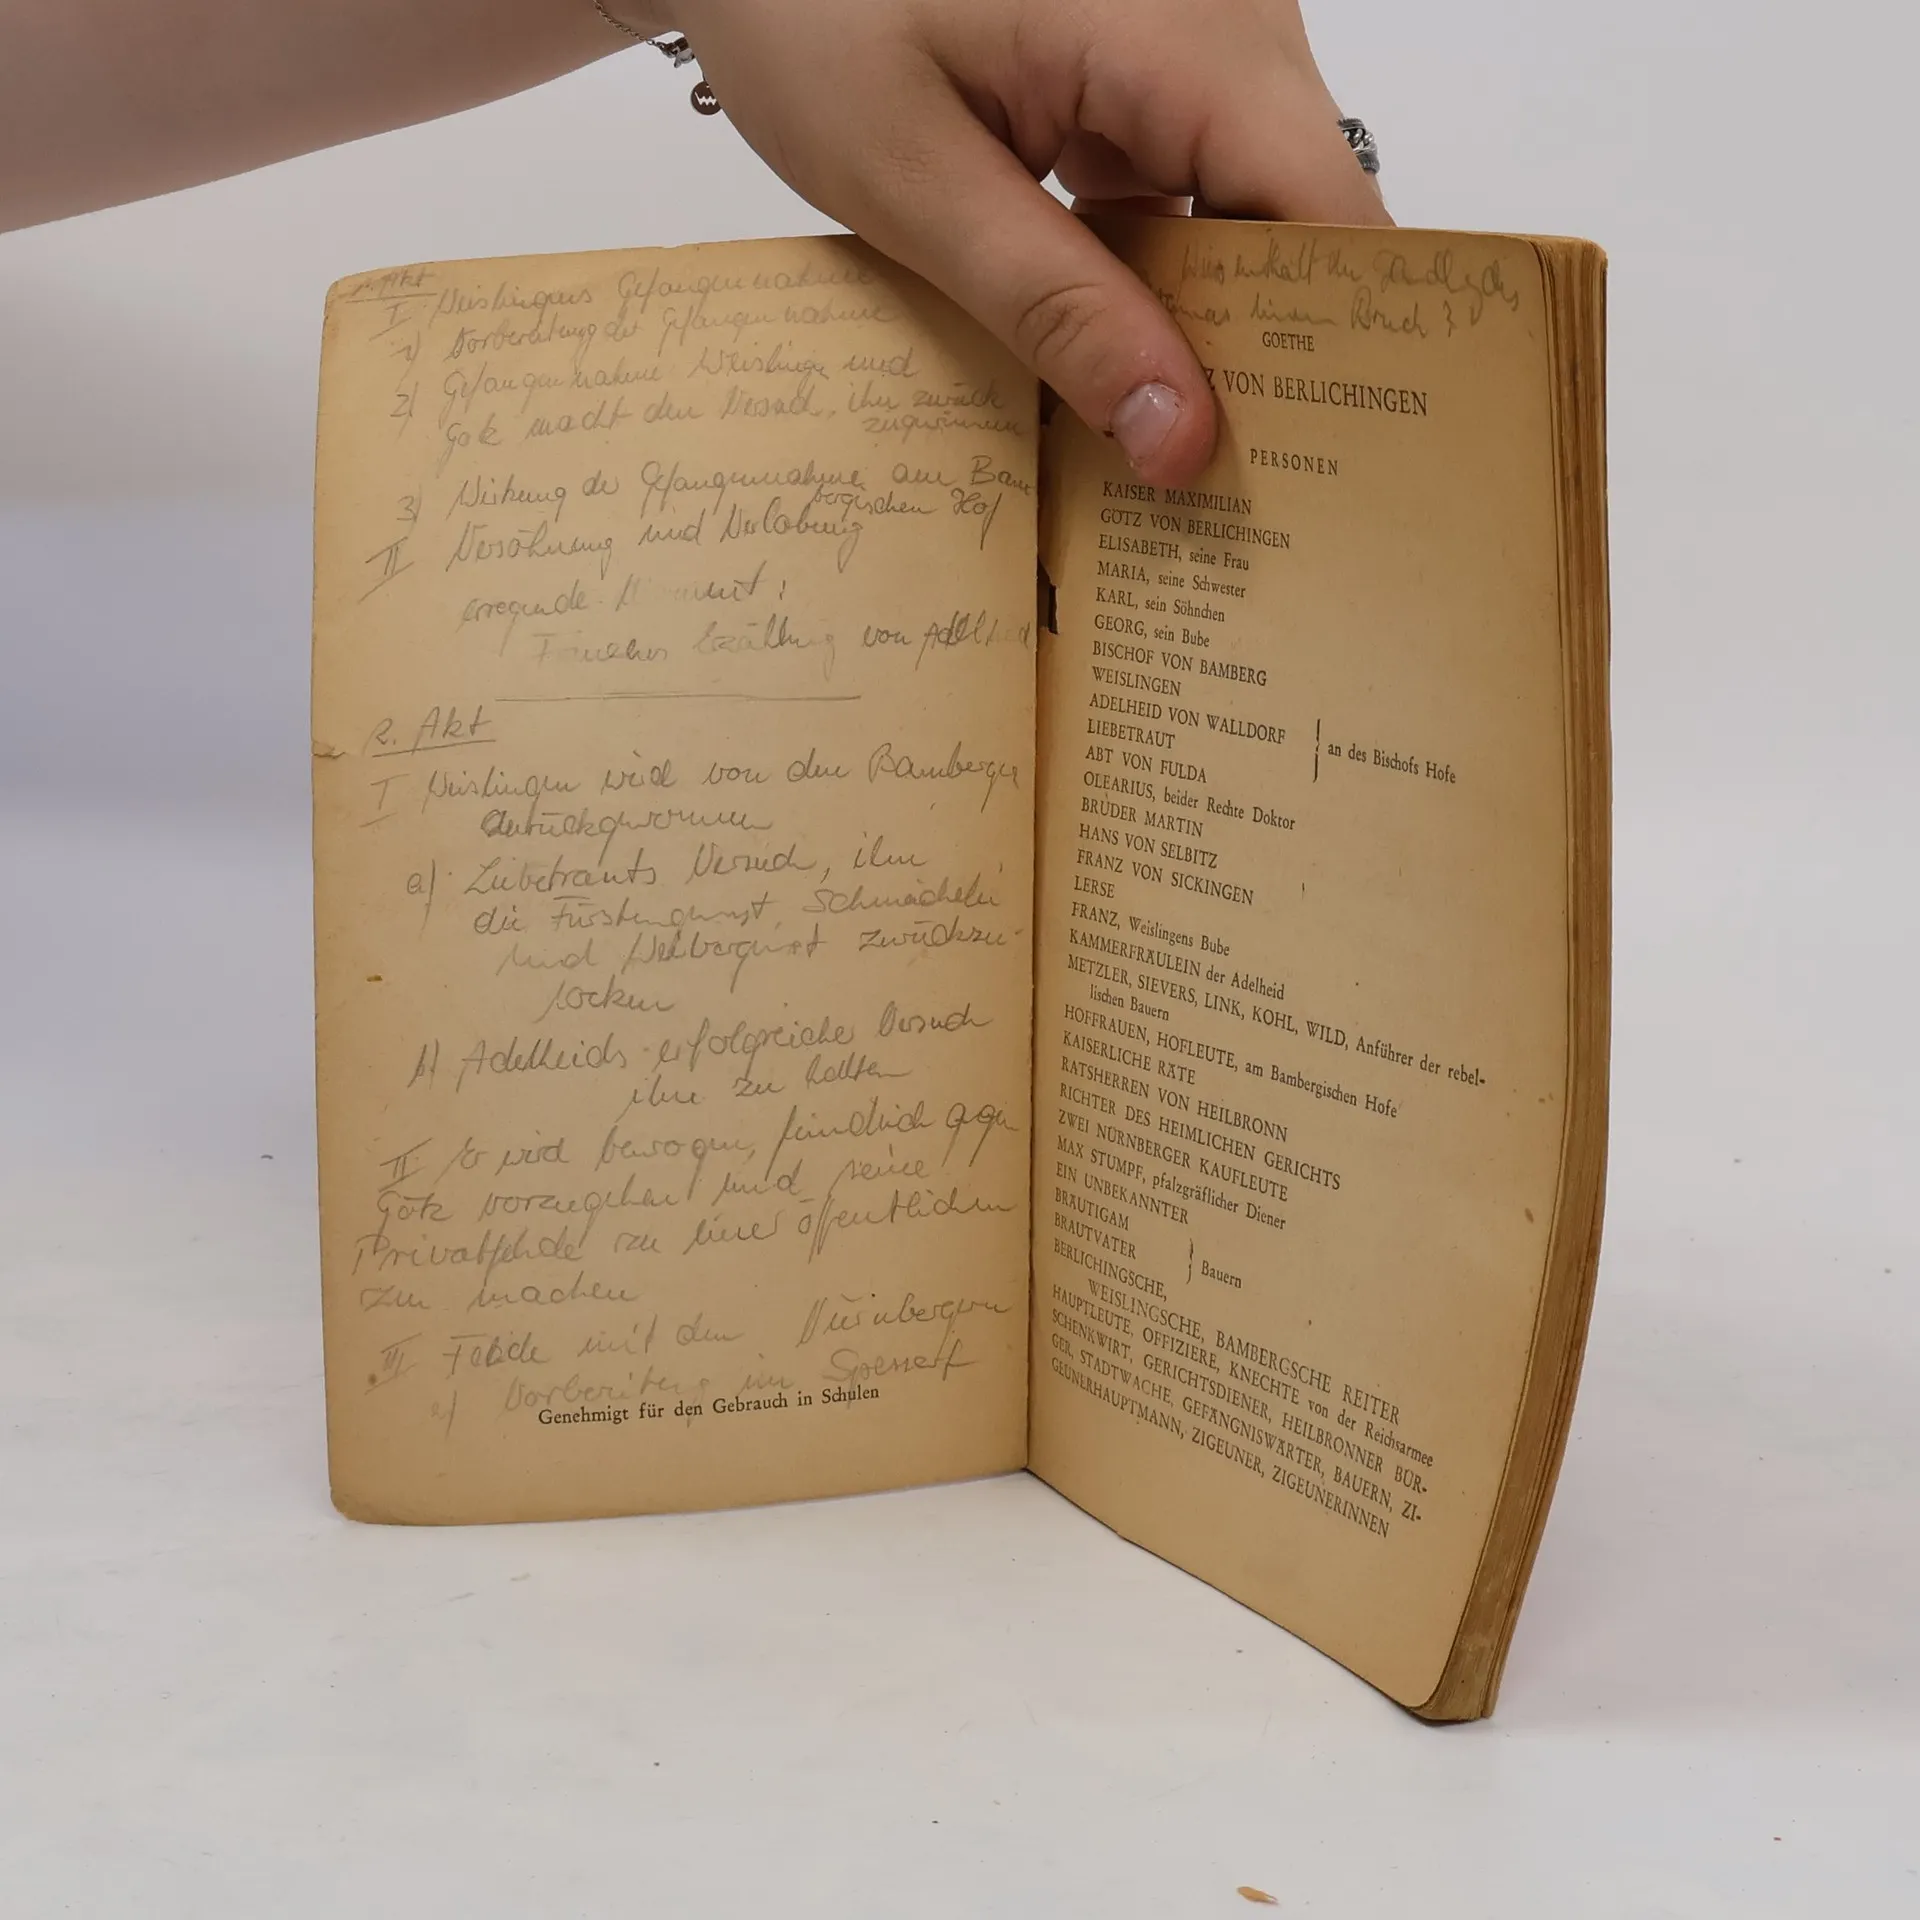 1. Akt
I Weislingens Gefangennahme
1) Vorbereitung der Gefangennahme
2) Gefangennahme Weislings und
Götz macht den Versuch, ihn zurück
zugewinnen
3) Wirkung der Gefangennahme am Bam
bergischen Hof
II Versöhnung und Verlobung
erregende Moment:
Erzählung von Adelheid
2. Akt
I Weislingen wird von den Bamberger
zurückgewonnen
a) Liebetrauts Versuch, ihn
die Fürstengunst, Schmeichelei
und Weibergunst zurückzu-
locken
b) Adelheids erfolgreiche Versuch
ihn zu halten
II Er wird bewogen, feindlich gegen
Götz vorzugehen und seine
Privatfehde zu einer öffentlichen
zu machen
III Fehde mit den Nürnbergern
a) Vorbereitung im Spessart
Genehmigt für den Gebrauch in Schulen
Was enthält die
einen Bruch?
GOETHE
Z VON BERLICHINGEN
PERSONEN
KAISER MAXIMILIAN
GÖTZ VON BERLICHINGEN
ELISABETH, seine Frau
MARIA, seine Schwester
KARL, sein Söhnchen
GEORG, sein Bube
BISCHOF VON BAMBERG
WEISLINGEN
ADELHEID VON WALLDORF
LIEBETRAUT
an des Bischofs Hofe
ABT VON FULDA
OLEARIUS, beider Rechte Doktor
BRUDER MARTIN
HANS VON SELBITZ
FRANZ VON SICKINGEN
LERSE
FRANZ, Weislingens Bube
KAMMERFRÄULEIN der Adelheid
METZLER, SIEVERS, LINK, KOHL, WILD, Anführer der rebel-
lischen Bauern
HOFFRAUEN, HOFLEUTE, am Bambergischen Hofe
KAISERLICHE RÄTE
RATSHERREN VON HEILBRONN
RICHTER DES HEIMLICHEN GERICHTS
ZWEI NÜRNBERGER KAUFLEUTE
MAX STUMPF, pfalzgräflicher Diener
EIN UNBEKANNTER
BRÄUTIGAM
BRAUTVATER
Bauern
BERLICHINGSCHE,
WEISLINGSCHE, BAMBERGSCHE REITER
HAUPTLEUTE, OFFIZIERE, KNECHTE von der Reichsarmee
SCHENKWIRT, GERICHTSDIENER, HEILBRONNER BÜR-
GER, STADTWACHE, GEFÄNGNISWÄRTER, BAUERN, ZI-
GEUNERHAUPTMANN, ZIGEUNER, ZIGEUNERINNEN